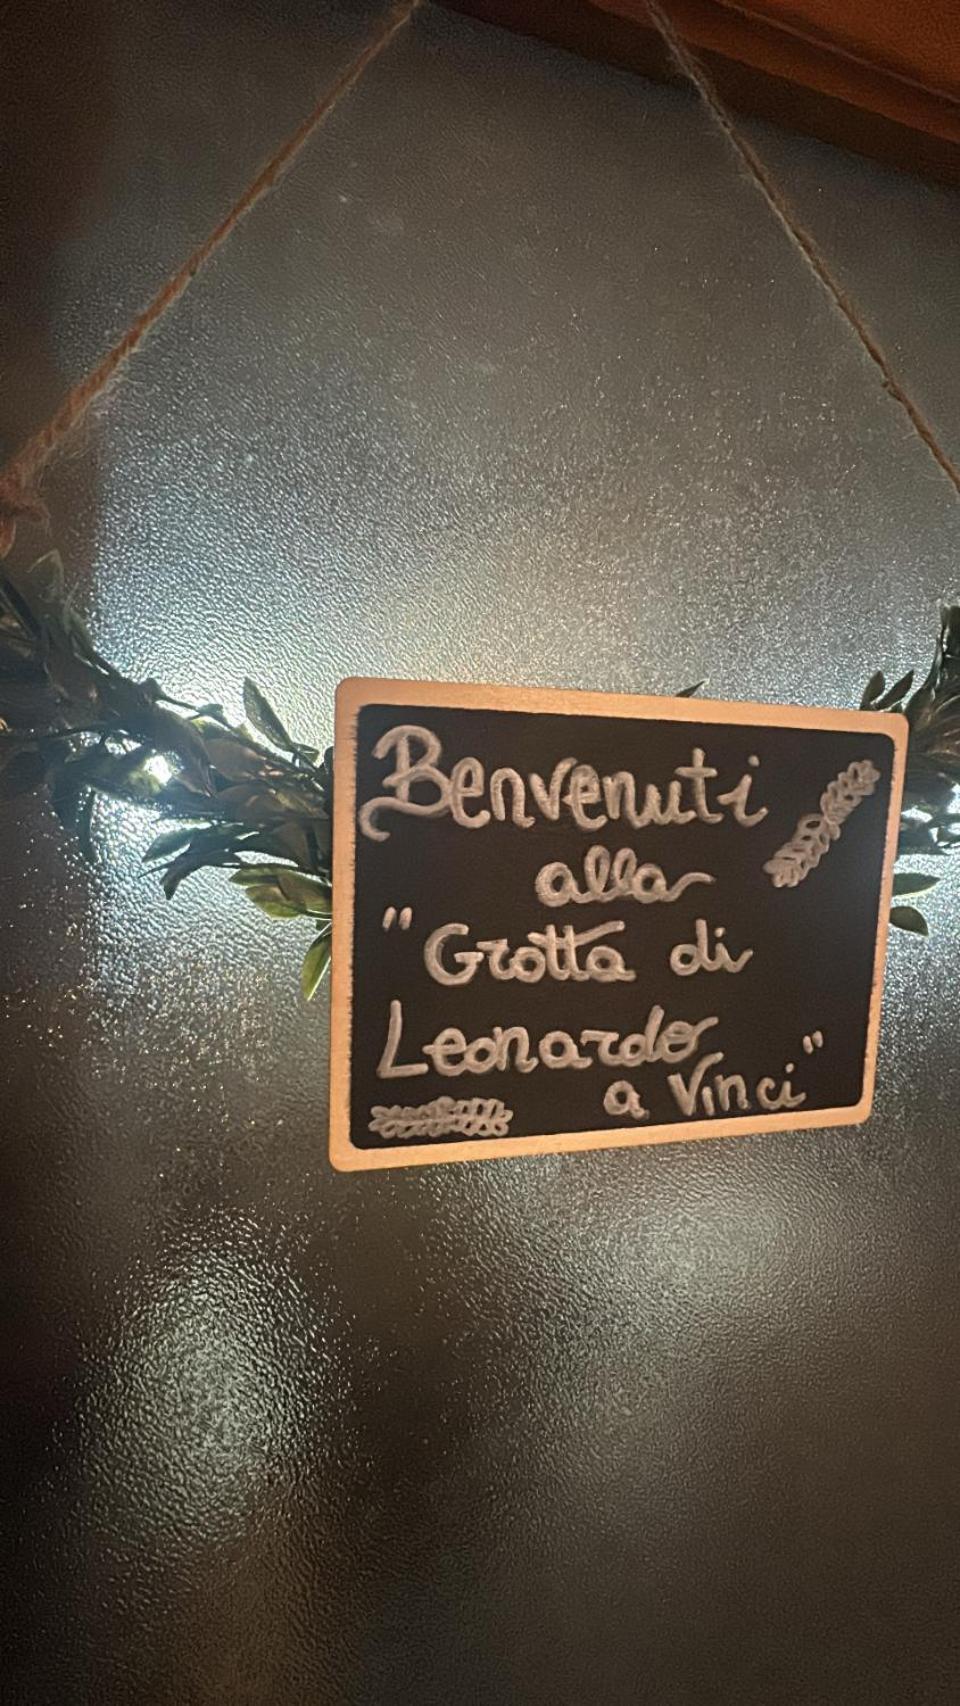 Benvenuti
alla
"Grotta di
Leonardo
a Vinci"